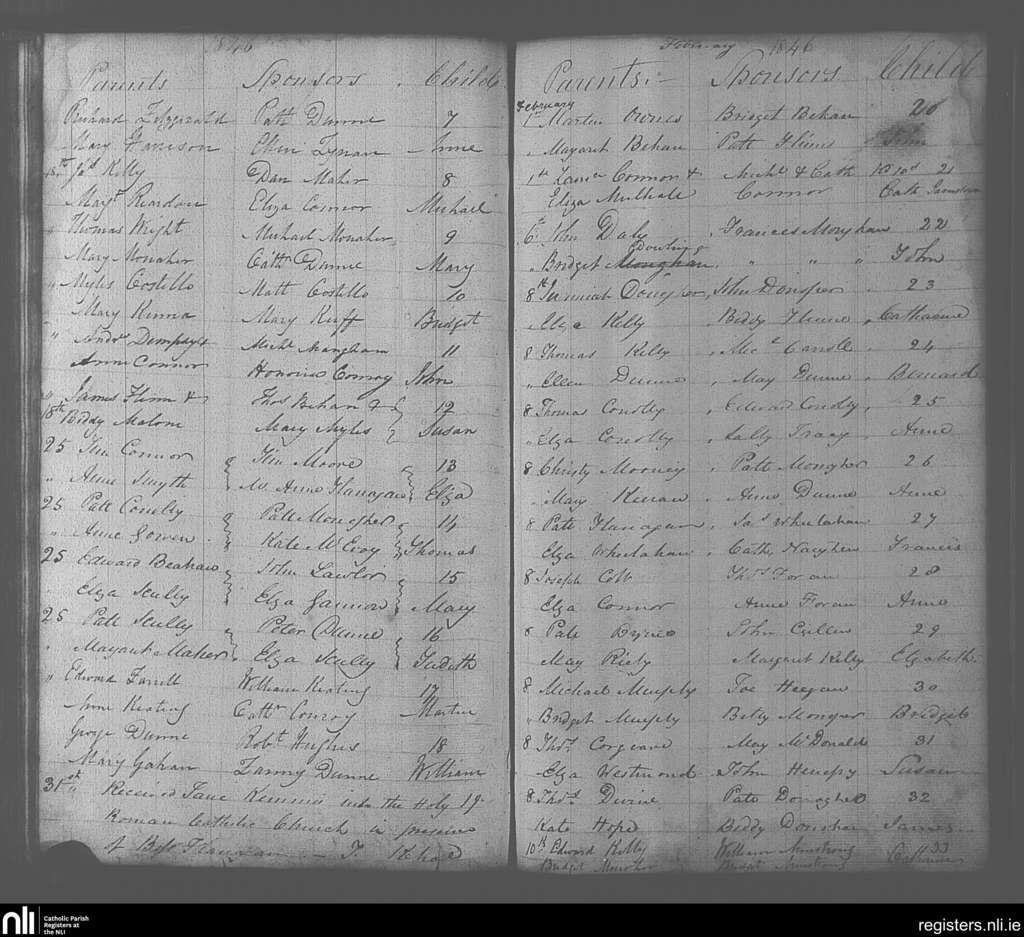 1846
Parents Sponsors Child
Richard Fitzgerald Patt Dunne 7
Mary Harrison Ellen Tynan Anne
15th Jas Kelly Dan Maher 8
Margt Reardon Eliza Connor Michael
" Thomas Wright Michael Monaher 9
Mary Monaher Cathn Dunne Mary
" Myles Costello Matt Costello 10
Mary Kinna Mary Kuff Bridget
" Andw Dempsy Michl Mangham 11
Anne Connor Honoria Conroy John
" James Flinn & Thos Behan & 12
18th Biddy Malone Mary Myles Susan
25 Tim Connor Tim Moore 13
" Anne Smyth Anne Flanagan Eliza
25 Patt Conolly Patt Monogher 14
" Anne Gowen Kate McEvoy Thomas
25 Edward Beahan John Lawlor 15
" Elza Scully Elza Gannon Mary
25 Patt Scully Peter Dunne 16
" Margaret Maher Elza Scully Judith
" Edward Farrell William Keating 17
Anne Keating Cathn Conroy Martin
George Dunne Robt Hughes 18
Mary Gahan Fanny Dunne William
31st " Received Jane Kemmis into the Holy 19
Roman Catholic Church in presence
of Flanagan
February 1846
Parents:- Sponsors Child
February
1st Martin Bridget Behan 20
" Margaret Behan Patt
1st Connor & Michl & Cath 21
Eliza Mulhale Connor Cath
6th John Daly Frances Monghan 22
Dowling
" Bridget Monghan " " " John
8th Jeremiah John 23
Eliza Kelly Biddy Catharine
8 Thomas Kelly Carroll 24
" Ellen Dunne May Dunne Bernard
8 Thomas Conolly Edward Conolly 25
" Elza Conolly Sally Tracy Anne
8 Christy Mooney Patt Mongher 26
" Mary Keenan Anne Dunne Anne
8 Patt Flanagan Jas Whelahan 27
Elza Whelahan Cath Francis
8 Joseph Thos Foran 28
Elza Connor Anne Foran Anne
8 Patt Byrne John Cullen 29
May Margaret Kelly Elizabeth
8 Michael Murphy Joe 30
" Bridget Murphy Betsy Bridget
8 Thos May McDonald 31
Elza Westmond John Susan
8 Thos Divine Patt Donaghe 32
Kate Hope Biddy James
10th Edward Kelly William Armstrong 33
Bridget Bridget Armstrong Catharine
nli Catholic Parish
Registers at
the NLI
registers.nli.ie